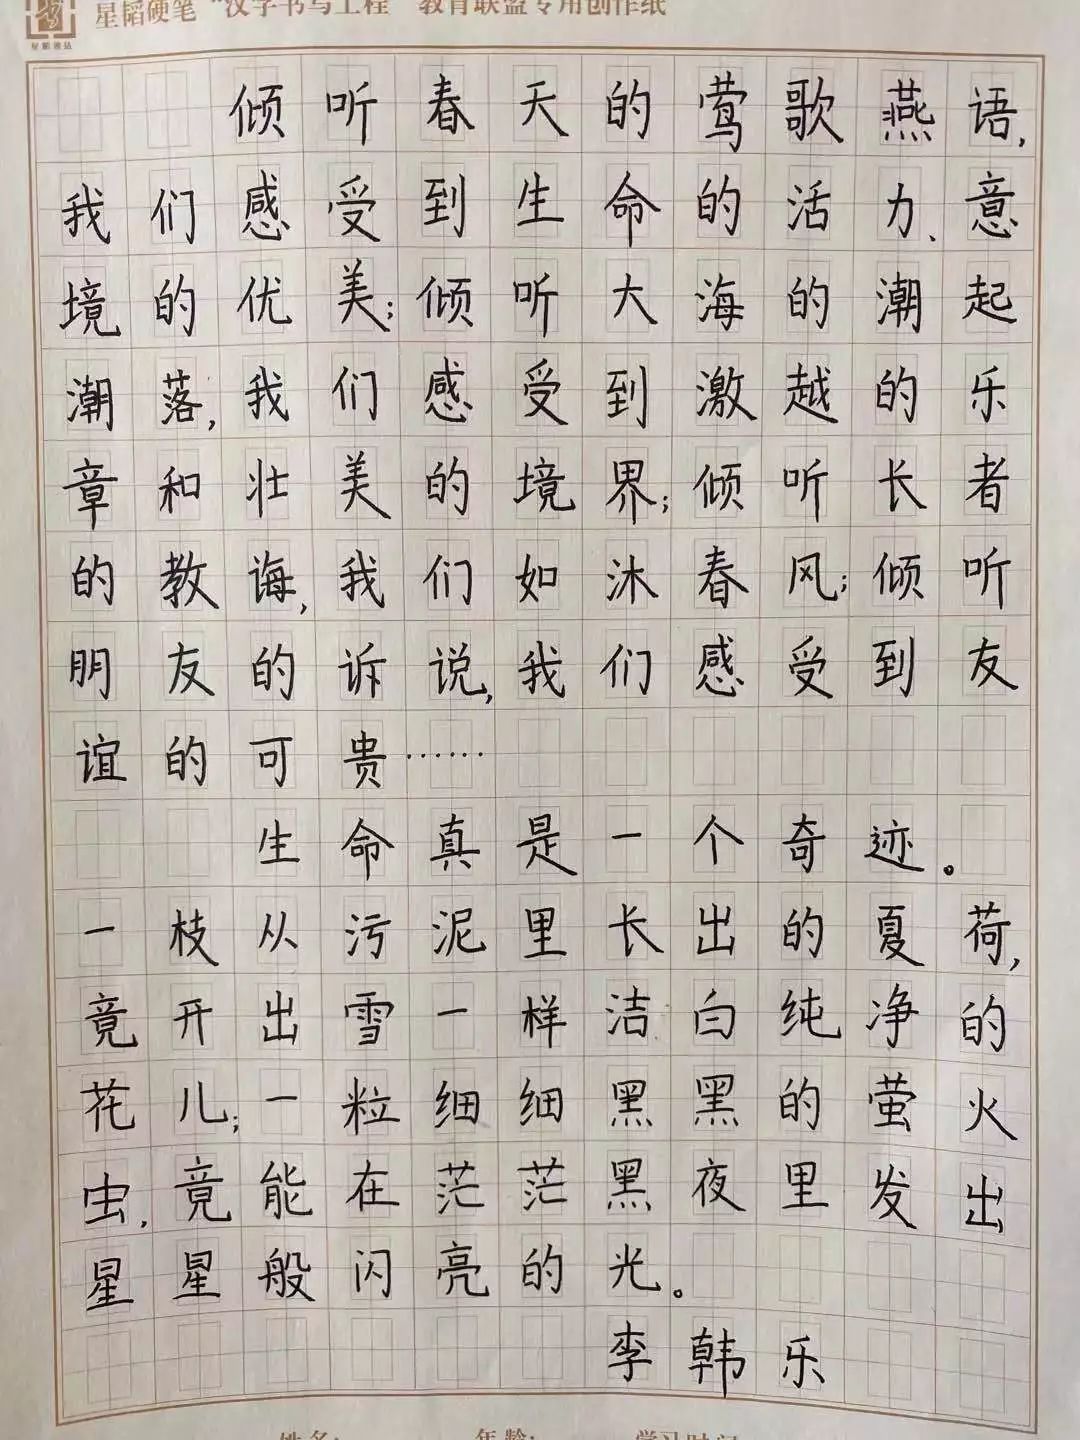 星韬硬笔“汉字书写工程”教育联盟专用创作纸
倾听春天的莺歌燕语,
我们感受到生命的活力、意
境的优美;倾听大海的潮起
潮落,我们感受到激越的乐
章和壮美的境界;倾听长者
的教诲,我们如沐春风;倾听
朋友的诉说,我们感受到友
谊的可贵……
生命真是一个奇迹。
一枝从污泥里长出的夏荷,
竟开出雪一样洁白纯净的
花儿;一粒细细黑黑的萤火
虫,竟能在茫茫黑夜里发出
星星般闪亮的光。
李韩乐
姓名: 年龄: 学习时间